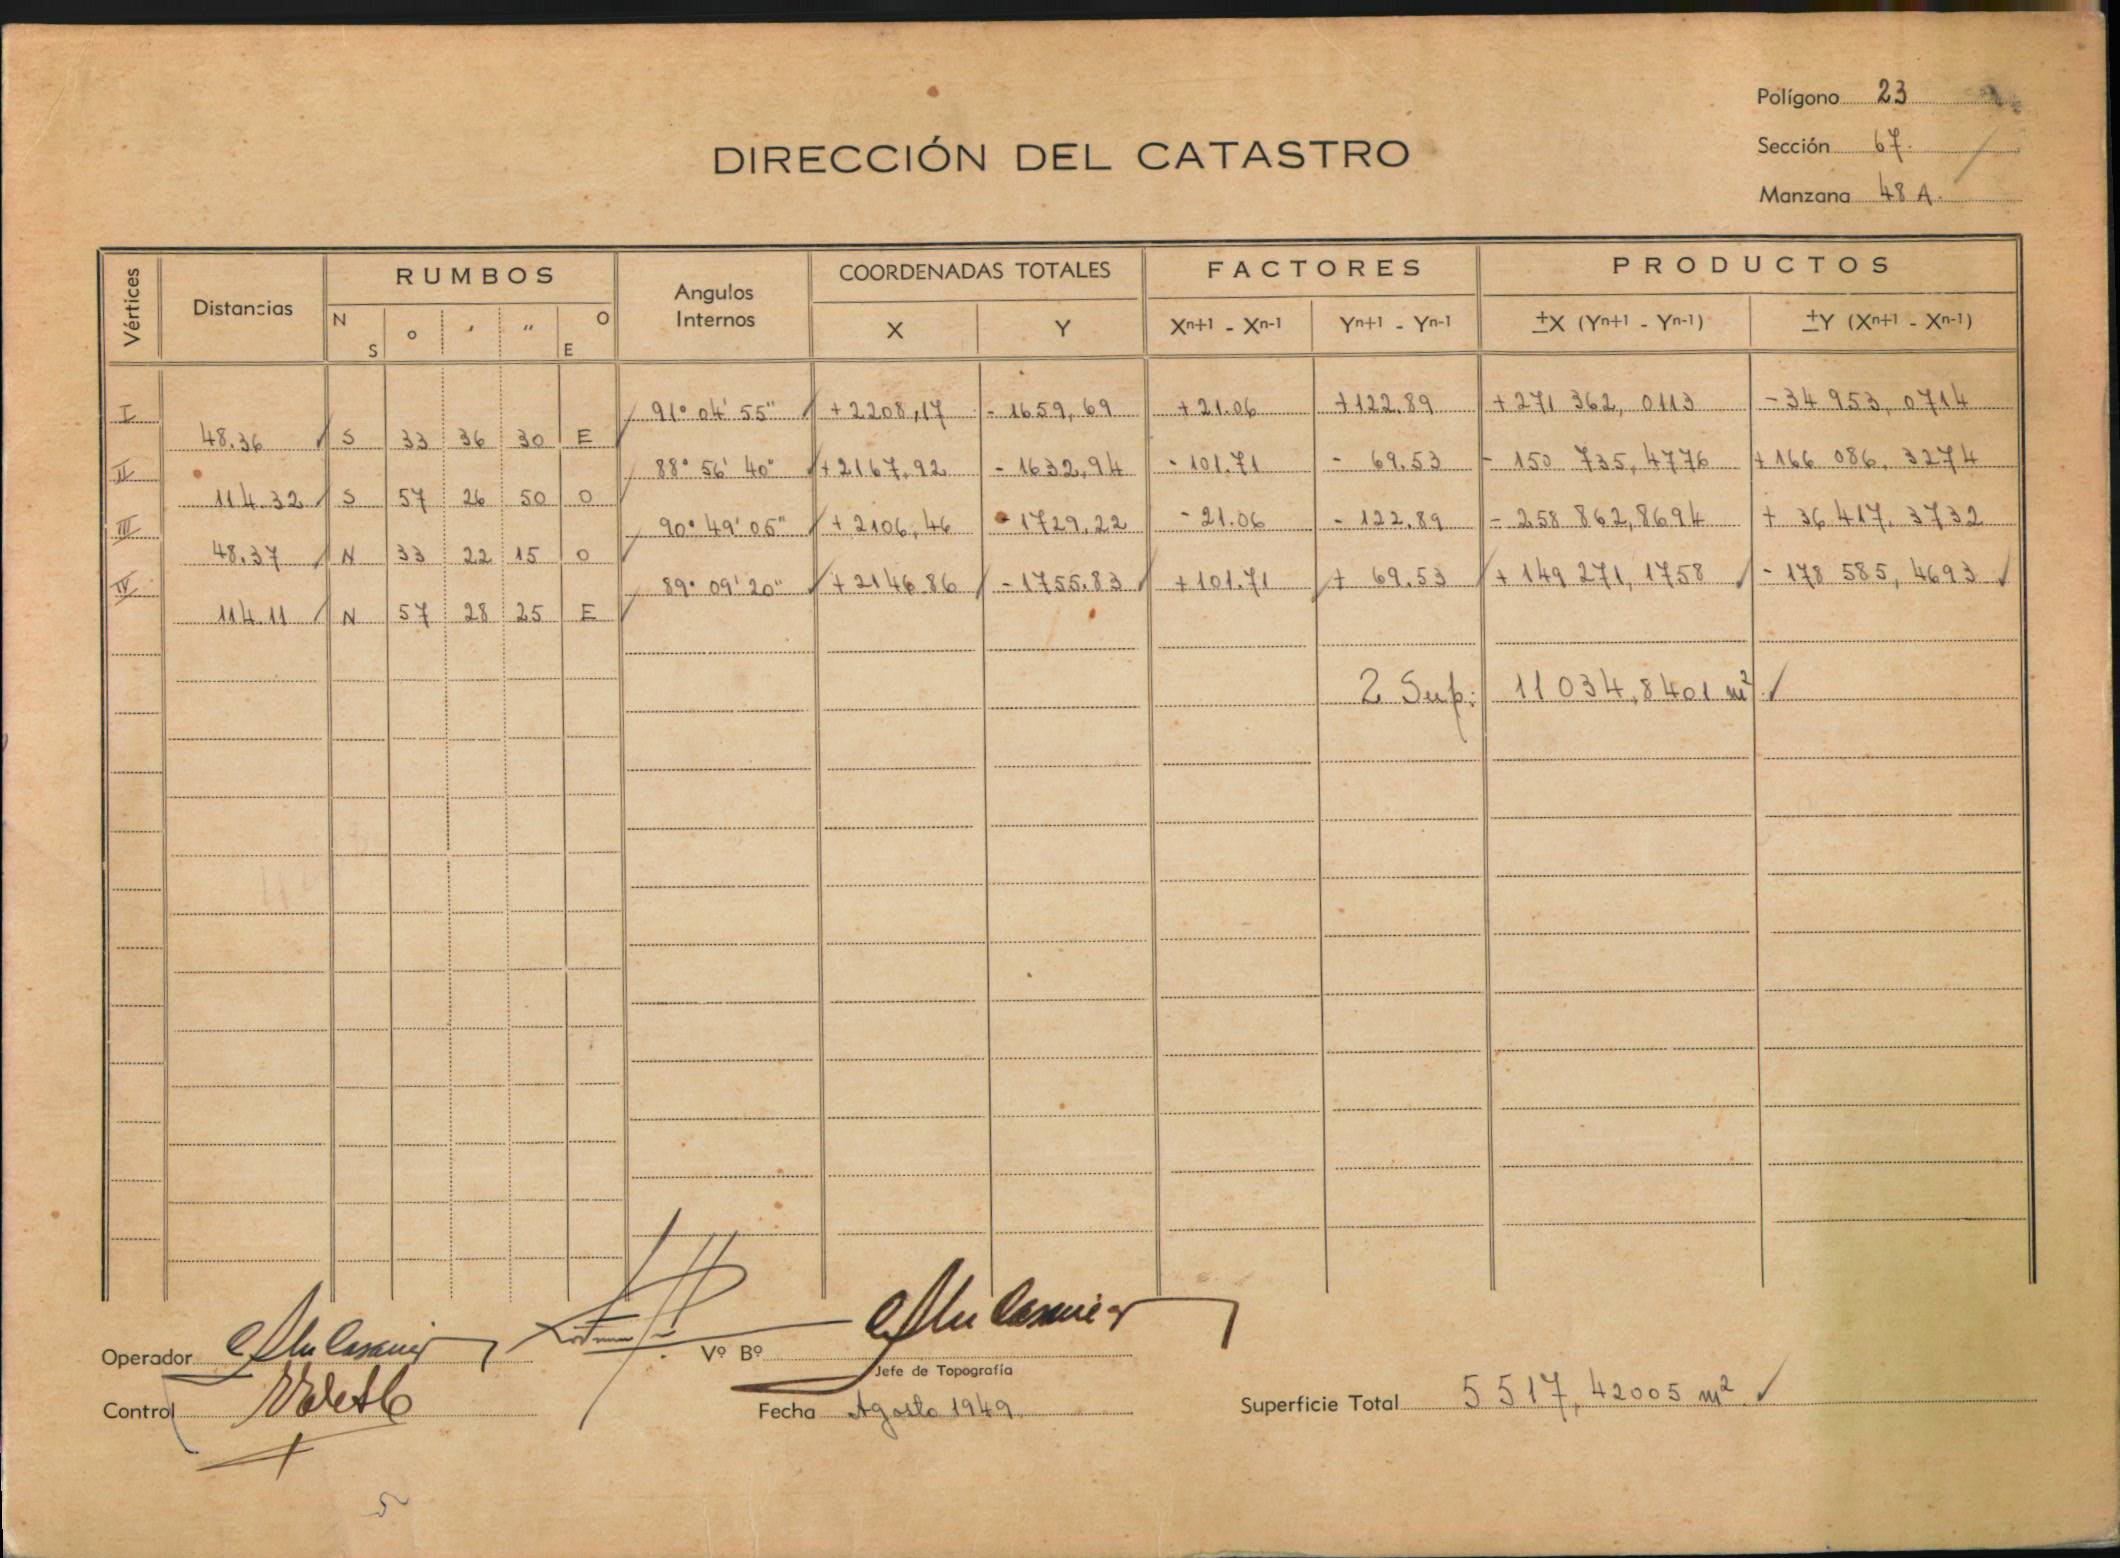 Polígono 23
Sección 67.
Manzana 48 A.
DIRECCIÓN DEL CATASTRO
Vértices Distancias RUMBOS Angulos Internos COORDENADAS TOTALES FACTORES PRODUCTOS
N S ° ' " O E X Y Xn+1 - Xn-1 Yn+1 - Yn-1 ±X (Yn+1 - Yn-1) ±Y (Xn+1 - Xn-1)
I 91° 04' 55" +2208,17 - 1659,69 +21.06 +122.89 +271 362, 0113 -34 953, 0714
48.36 S 33 36 30 E
II 88° 56' 40" +2167,92 - 1632,94 - 101.71 - 69.53 - 150 735,4776 +166 086, 3274
114.32 S 57 26 50 O
III 90° 49' 05" +2106,46 - 1729,22 - 21.06 - 122.89 - 258 862,8694 + 36 417, 3732
48.37 N 33 22 15 O
IV 89° 09' 20" +2146.86 - 1755.83 +101.71 + 69.53 + 149 271, 1758 - 178 585, 4693
114.11 N 57 28 25 E
2 Sup: 11 034,8401 m²
Operador
Vº Bº
Jefe de Topografía
Control
Fecha Agosto 1949.
Superficie Total 5 517, 42005 m²